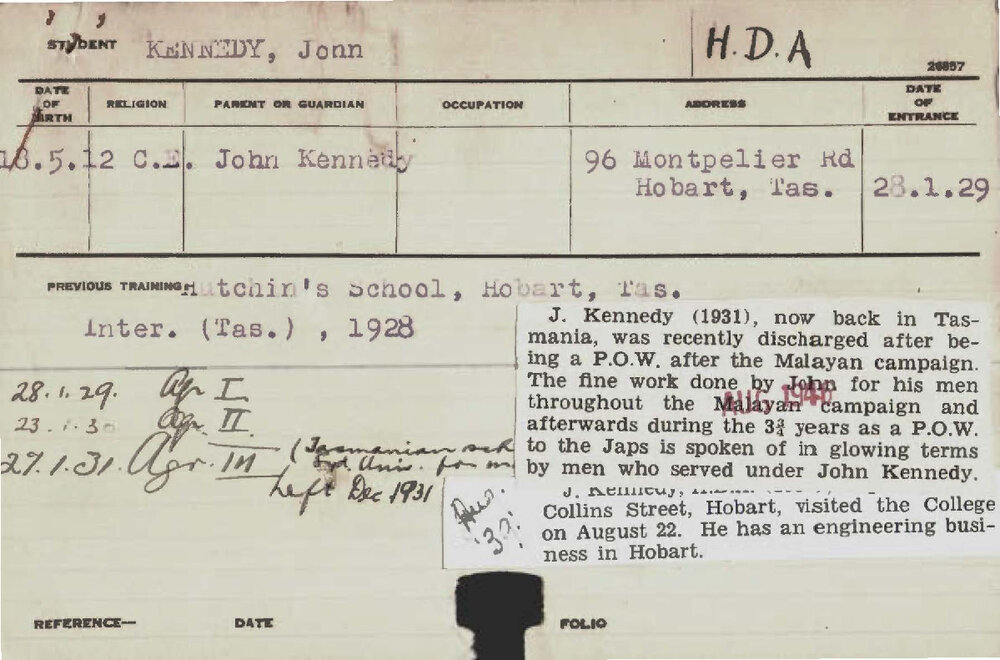 STUDENT KENNEDY, John H.D.A
26857
DATE OF BIRTH RELIGION PARENT OR GUARDIAN OCCUPATION ADDRESS DATE OF ENTRANCE
18.5.12 C.E. John Kennedy 96 Montpelier Rd
Hobart, Tas. 28.1.29
PREVIOUS TRAINING Hutchin's School, Hobart, Tas.
Inter. (Tas.) , 1928
J. Kennedy (1931), now back in Tas-
mania, was recently discharged after be-
ing a P.O.W. after the Malayan campaign.
The fine work done by John for his men
throughout the Malayan campaign and
afterwards during the 3¾ years as a P.O.W.
to the Japs is spoken of in glowing terms
by men who served under John Kennedy.
AUG 194
28.1.29. Ag I
23.1.30 Ag. II
27.1.31. Agr. III (Tasmanian sch
Left Dec 1931
J. Kennedy,
Collins Street, Hobart, visited the College
on August 22. He has an engineering busi-
ness in Hobart.
'37.
REFERENCE— DATE FOLIO